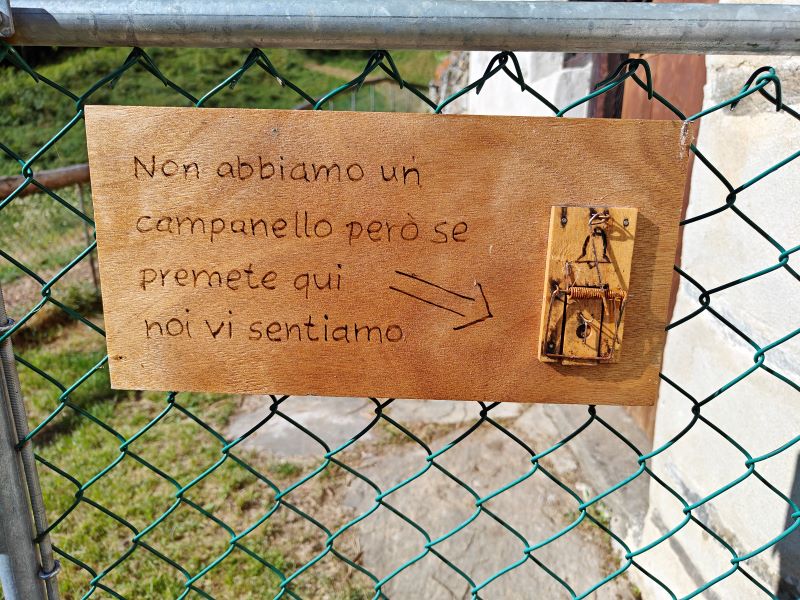 Non abbiamo un
campanello però se
premete qui
noi vi sentiamo